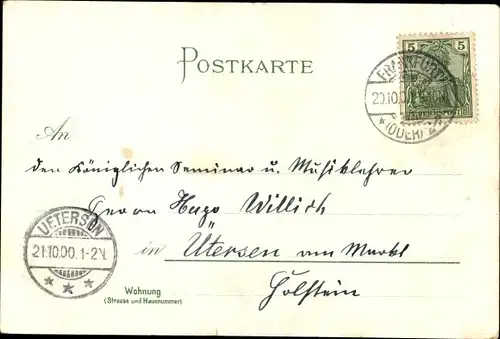 POSTKARTE
5 5
FRANKFURT
20.10.00
*(ODER) 2*
An
den Königlichen Seminar u. Musiklehrer
Herrn Hugo Willich
in Ütersen am Markt
Holstein
UETERSEN
21.10.00.1-2N.
Wohnung
(Strasse und Hausnummer)